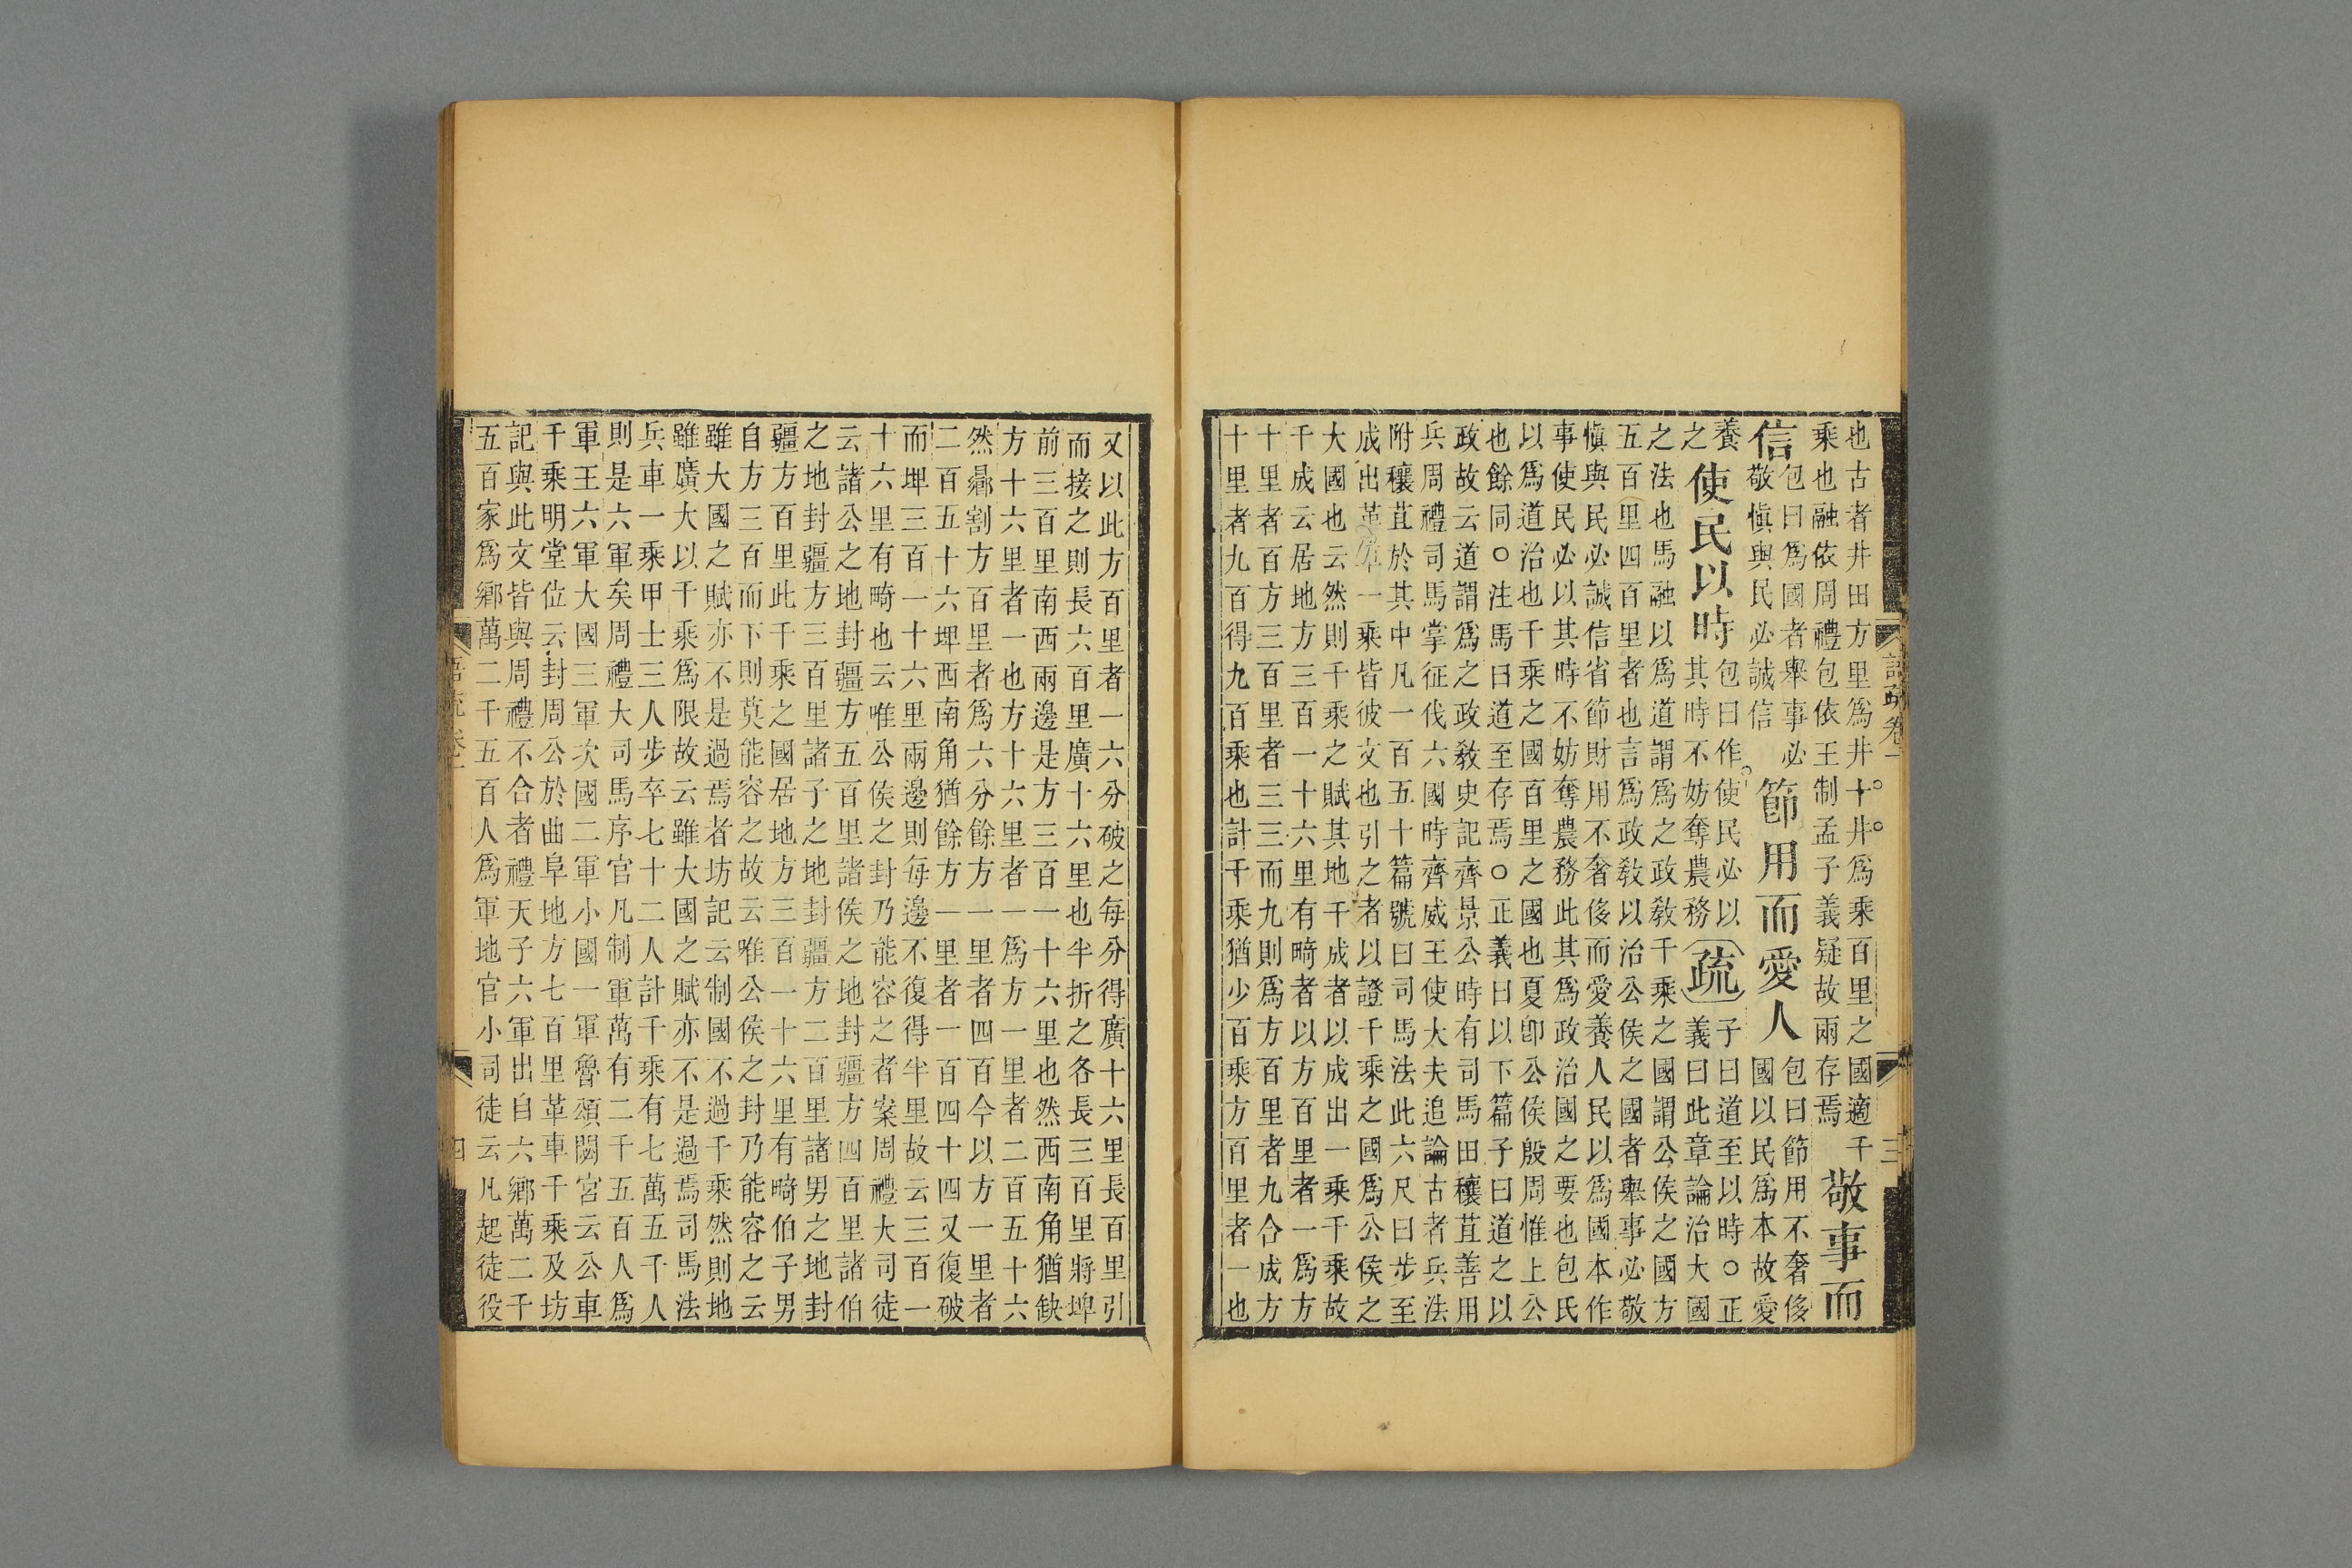 也古者井田方里爲井十井爲乘百里之國適千
乘也融依周禮包依王制孟子義疑故兩存焉
敬事而
信
包曰爲國者舉事必
敬慎與民必誠信
節用而愛人
包曰節用不奢侈
國以民爲本故愛
養
之
使民以時
包曰作使民必以
其時不妨奪農務
疏
子曰道至以時○正
義曰此章論治大國
之法也馬融以爲道謂爲之政敎千乘之國謂公侯之國方
五百里四百里者也言爲政敎以治公侯之國者舉事必敬
慎與民必誠信省節財用不奢侈而愛養人民以爲國本作
事使民必以其時不妨奪農務此其爲政治國之要也包氏
以爲道治也千乘之國百里之國也夏卽公侯殷周惟上公
也餘同○注馬曰道至存焉○正義曰以下篇子曰道之以
政故云道謂爲之政敎史記齊景公時有司馬田穰苴善用
兵周禮司馬掌征伐六國時齊威王使大夫追論古者兵法
附穰苴於其中凡一百五十篇號曰司馬法此六尺曰步至
成出革車一乘皆彼文也引之者以證千乘之國爲公侯之
大國也云然則千乘之賦其地千成者以成出一乘千乘故
千成云居地方三百一十六里有畸者以方百里者一爲方
十里者百方三百里者三三而九則爲方百里者九合成方
十里者九百得九百乘也計千乘猶少百乘方百里者一也
語疏卷一
三
又以此方百里者一六分破之每分得廣十六里長百里引
而接之則長六百里廣十六里也半折之各長三百里將埤
前三百里南西兩邊是方三百一十六里也然西南角猶缺
方十六里者一也方十六里者一爲方一里者二百五十六
然曏割方百里者爲六分餘方一里者四百今以方一里者
二百五十六埤西南角猶餘方一里者一百四十四又復破
而埤三百一十六里兩邊則每邊不復得半里故云三百一
十六里有畸也云唯公侯之封乃能容之者案周禮大司徒
云諸公之地封疆方五百里諸侯之地封疆方四百里諸伯
之地封疆方三百里諸子之地封疆方二百里諸男之地封
疆方百里此千乘之國居地方三百一十六里有畸伯子男
自方三百而下則莫能容之故云唯公侯之封乃能容之云
雖大國之賦亦不是過焉者坊記云制國不過千乘然則地
雖廣大以千乘爲限故云雖大國之賦亦不是過焉司馬法
兵車一乘甲士三人步卒七十二人計千乘有七萬五千人
則是六軍矣周禮大司馬序官凡制軍萬有二千五百人爲
軍王六軍大國三軍次國二軍小國一軍魯頌閟宮云公車
千乘明堂位云封周公於曲阜地方七百里革車千乘及坊
記與此文皆與周禮不合者禮天子六軍出自六鄉萬二千
五百家爲鄉萬二千五百人爲軍地官小司徒云凡起徒役
語疏卷一
四